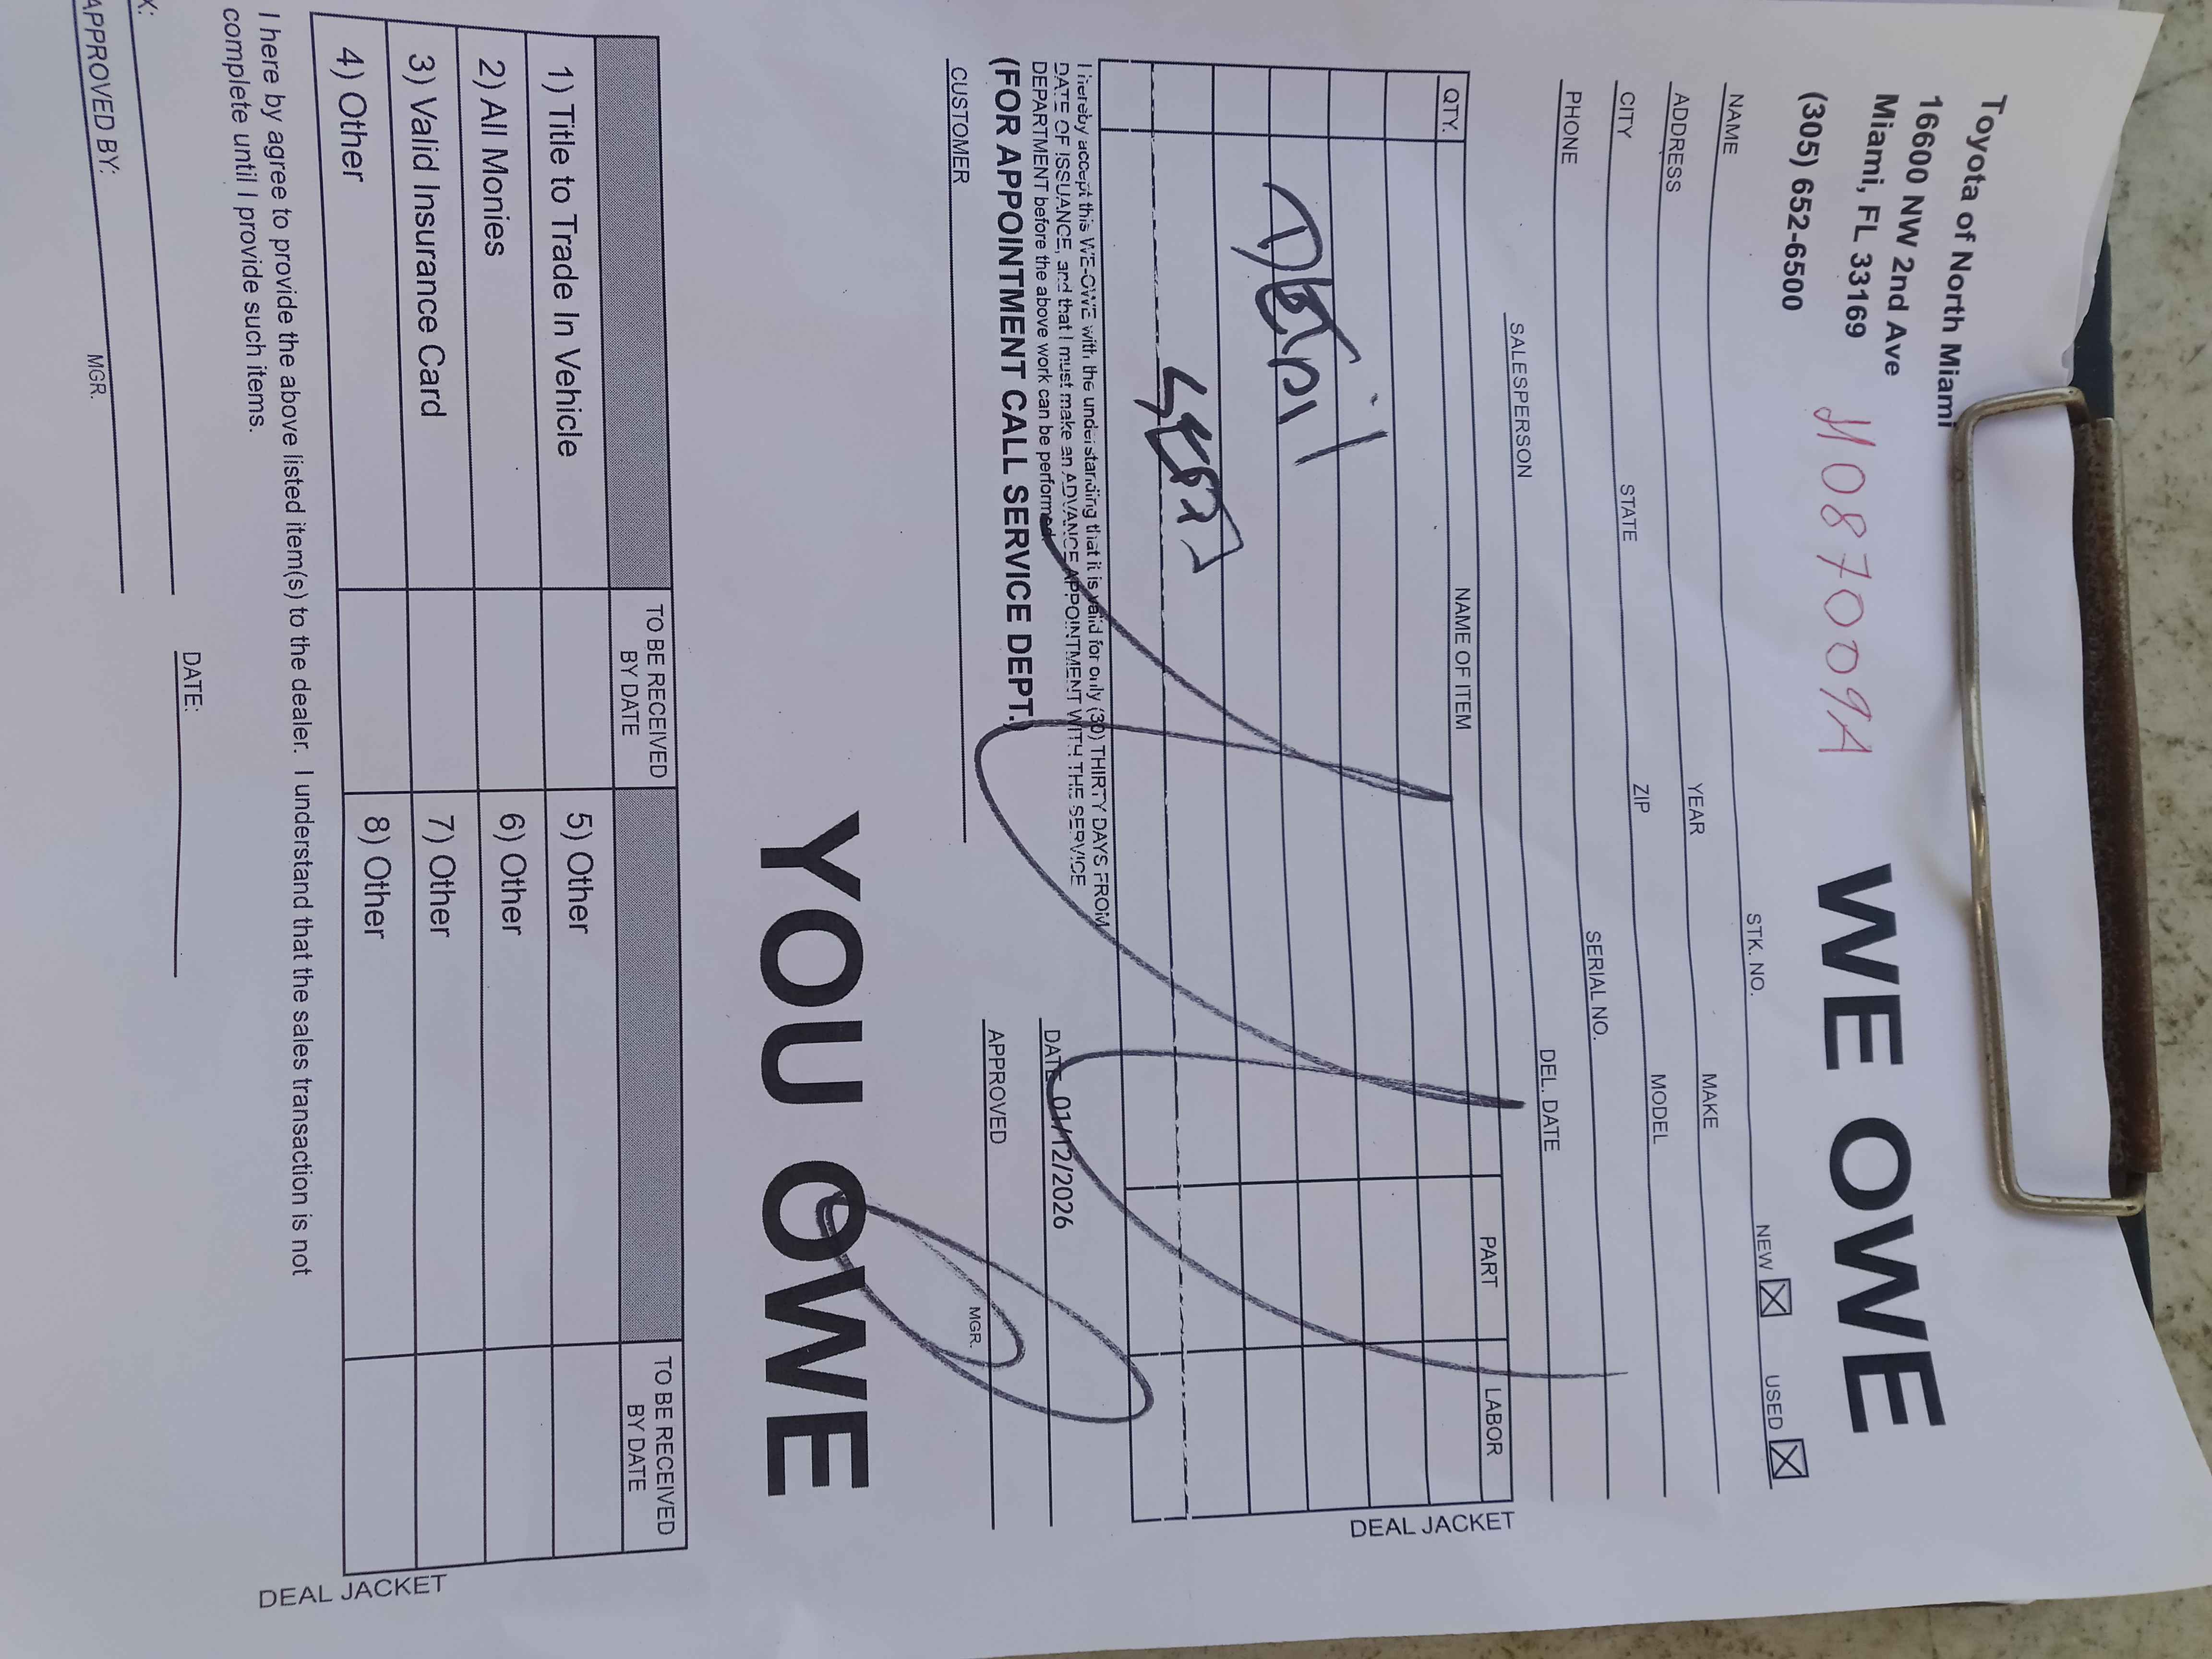 Toyota of North Miami
16600 NW 2nd Ave
Miami, FL 33169
(305) 652-6500
M087009A
WE OWE
NAME STK. NO. NEW ☒ USED ☒
ADDRESS YEAR MAKE
CITY STATE ZIP MODEL
PHONE SERIAL NO.
SALESPERSON DEL. DATE
QTY. NAME OF ITEM PART LABOR
Detail
DEAL JACKET
I hereby accept this WE-OWE with the understanding that it is valid for only (30) THIRTY DAYS FROM
DATE OF ISSUANCE, and that I must make an ADVANCE APPOINTMENT WITH THE SERVICE
DEPARTMENT before the above work can be performed.
(FOR APPOINTMENT CALL SERVICE DEPT.)
DATE 01/12/2026
CUSTOMER APPROVED MGR.
YOU OWE
TO BE RECEIVED BY DATE TO BE RECEIVED BY DATE
1) Title to Trade In Vehicle 5) Other
2) All Monies 6) Other
3) Valid Insurance Card 7) Other
4) Other 8) Other
DEAL JACKET
I here by agree to provide the above listed item(s) to the dealer. I understand that the sales transaction is not
complete until I provide such items.
X: DATE:
APPROVED BY: MGR.